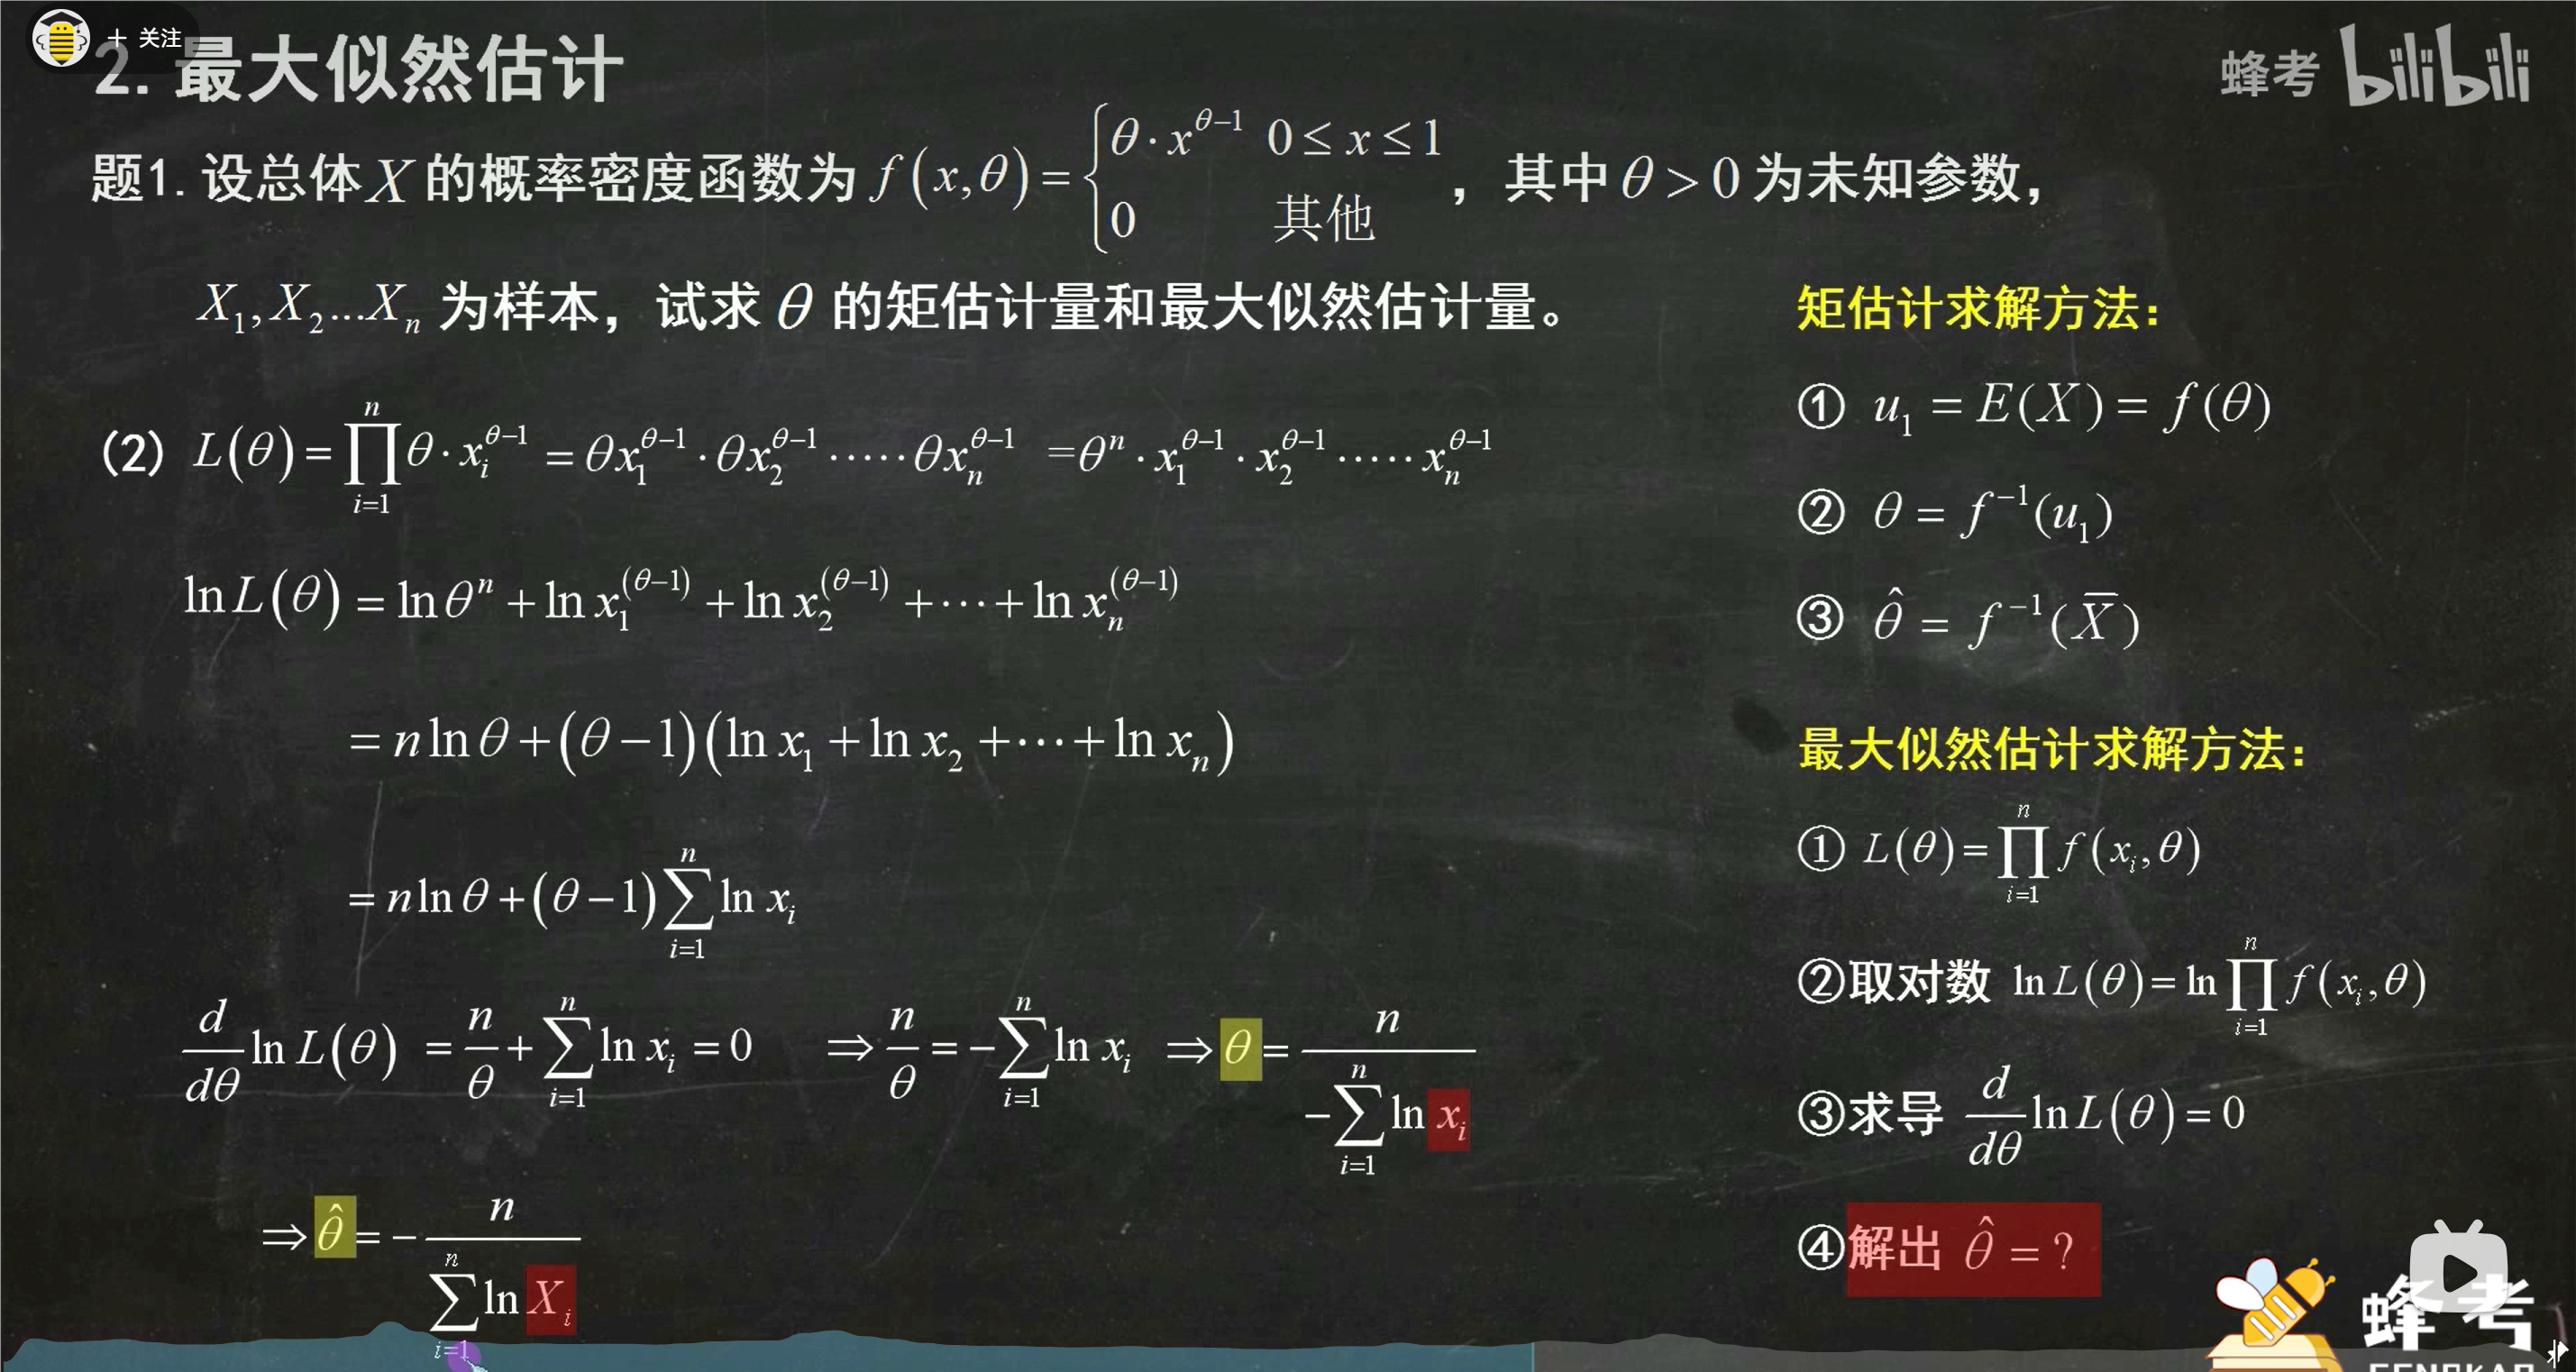 + 关注
2. 最大似然估计
蜂考 bilibili
题1. 设总体 X 的概率密度函数为 f(x,θ) = { θ·x^{θ-1} 0≤x≤1 ; 0 其他 , 其中 θ>0 为未知参数,
X₁, X₂...Xₙ 为样本，试求 θ 的矩估计量和最大似然估计量。
(2) L(θ) = ∏_{i=1}^{n} θ·x_i^{θ-1} = θx_1^{θ-1}·θx_2^{θ-1}·····θx_n^{θ-1} = θ^n·x_1^{θ-1}·x_2^{θ-1}·····x_n^{θ-1}
ln L(θ) = ln θ^n + ln x_1^{(θ-1)} + ln x_2^{(θ-1)} + ⋯ + ln x_n^{(θ-1)}
= n ln θ + (θ-1)(ln x_1 + ln x_2 + ⋯ + ln x_n)
= n ln θ + (θ-1) ∑_{i=1}^{n} ln x_i
d/dθ ln L(θ) = n/θ + ∑_{i=1}^{n} ln x_i = 0 ⇒ n/θ = -∑_{i=1}^{n} ln x_i ⇒ θ = n / (-∑_{i=1}^{n} ln x_i)
⇒ θ̂ = - n / (∑_{i=1}^{n} ln X_i)
矩估计求解方法：
① u₁ = E(X) = f(θ)
② θ = f^{-1}(u₁)
③ θ̂ = f^{-1}(X̄)
最大似然估计求解方法：
① L(θ) = ∏_{i=1}^{n} f(x_i, θ)
②取对数 ln L(θ) = ln ∏_{i=1}^{n} f(x_i, θ)
③求导 d/dθ ln L(θ) = 0
④解出 θ̂ = ?
蜂考
FENGKAO